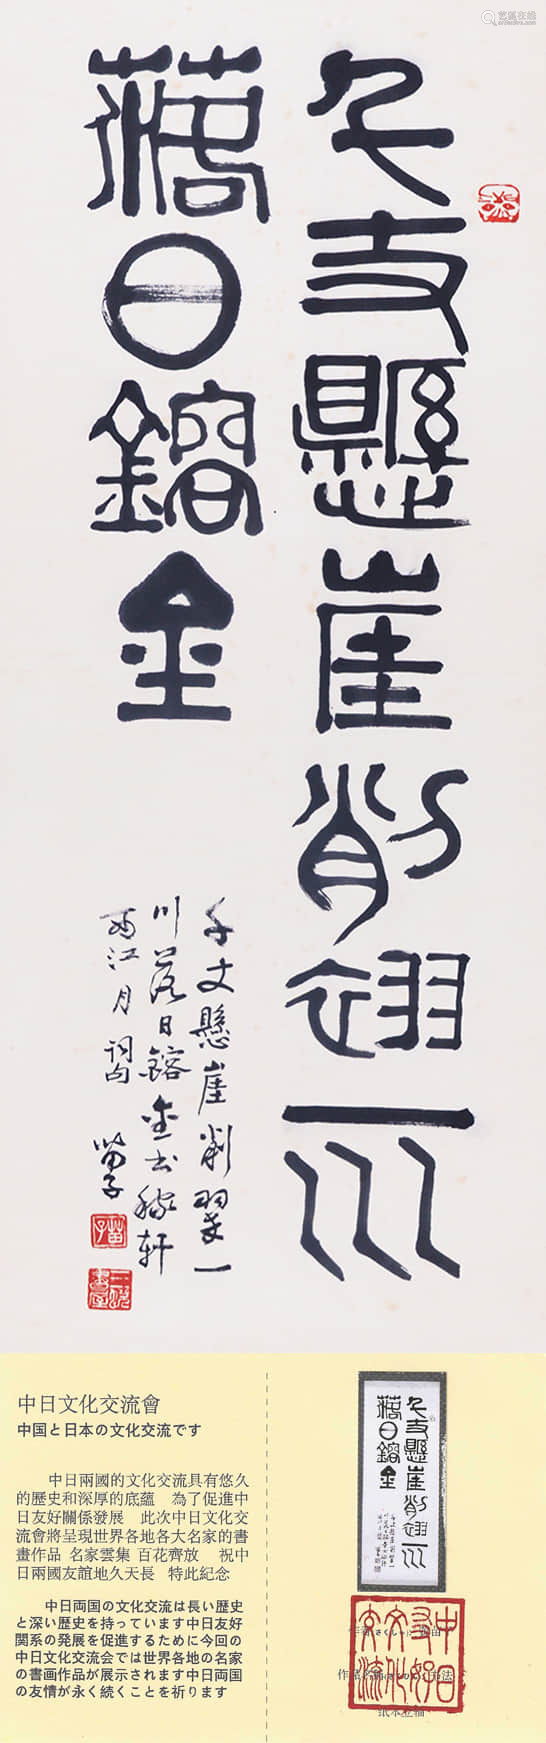 艺狐在线
千丈懸崖削翠一川
落日鎔金
千丈懸崖削翠一
川落日鎔金书稼軒
西江月詞句 苗子
苗子
中日文化交流會
中国と日本の文化交流です
中日兩國的文化交流具有悠久
的歷史和深厚的底蘊 為了促進中
日友好關係發展 此次中日文化交
流會將呈現世界各地各大名家的書
畫作品 名家雲集 百花齊放 祝中
日兩國友誼地久天長 特此紀念
中日両国の文化交流は長い歴史
と深い歴史を持っています中日友好
関系の発展を促進するために今回の
中日文化交流会では世界各地の名家
の書画作品が展示されます中日両国
の友情が永く続くことを祈ります
中日友好文化交流
纸本立轴